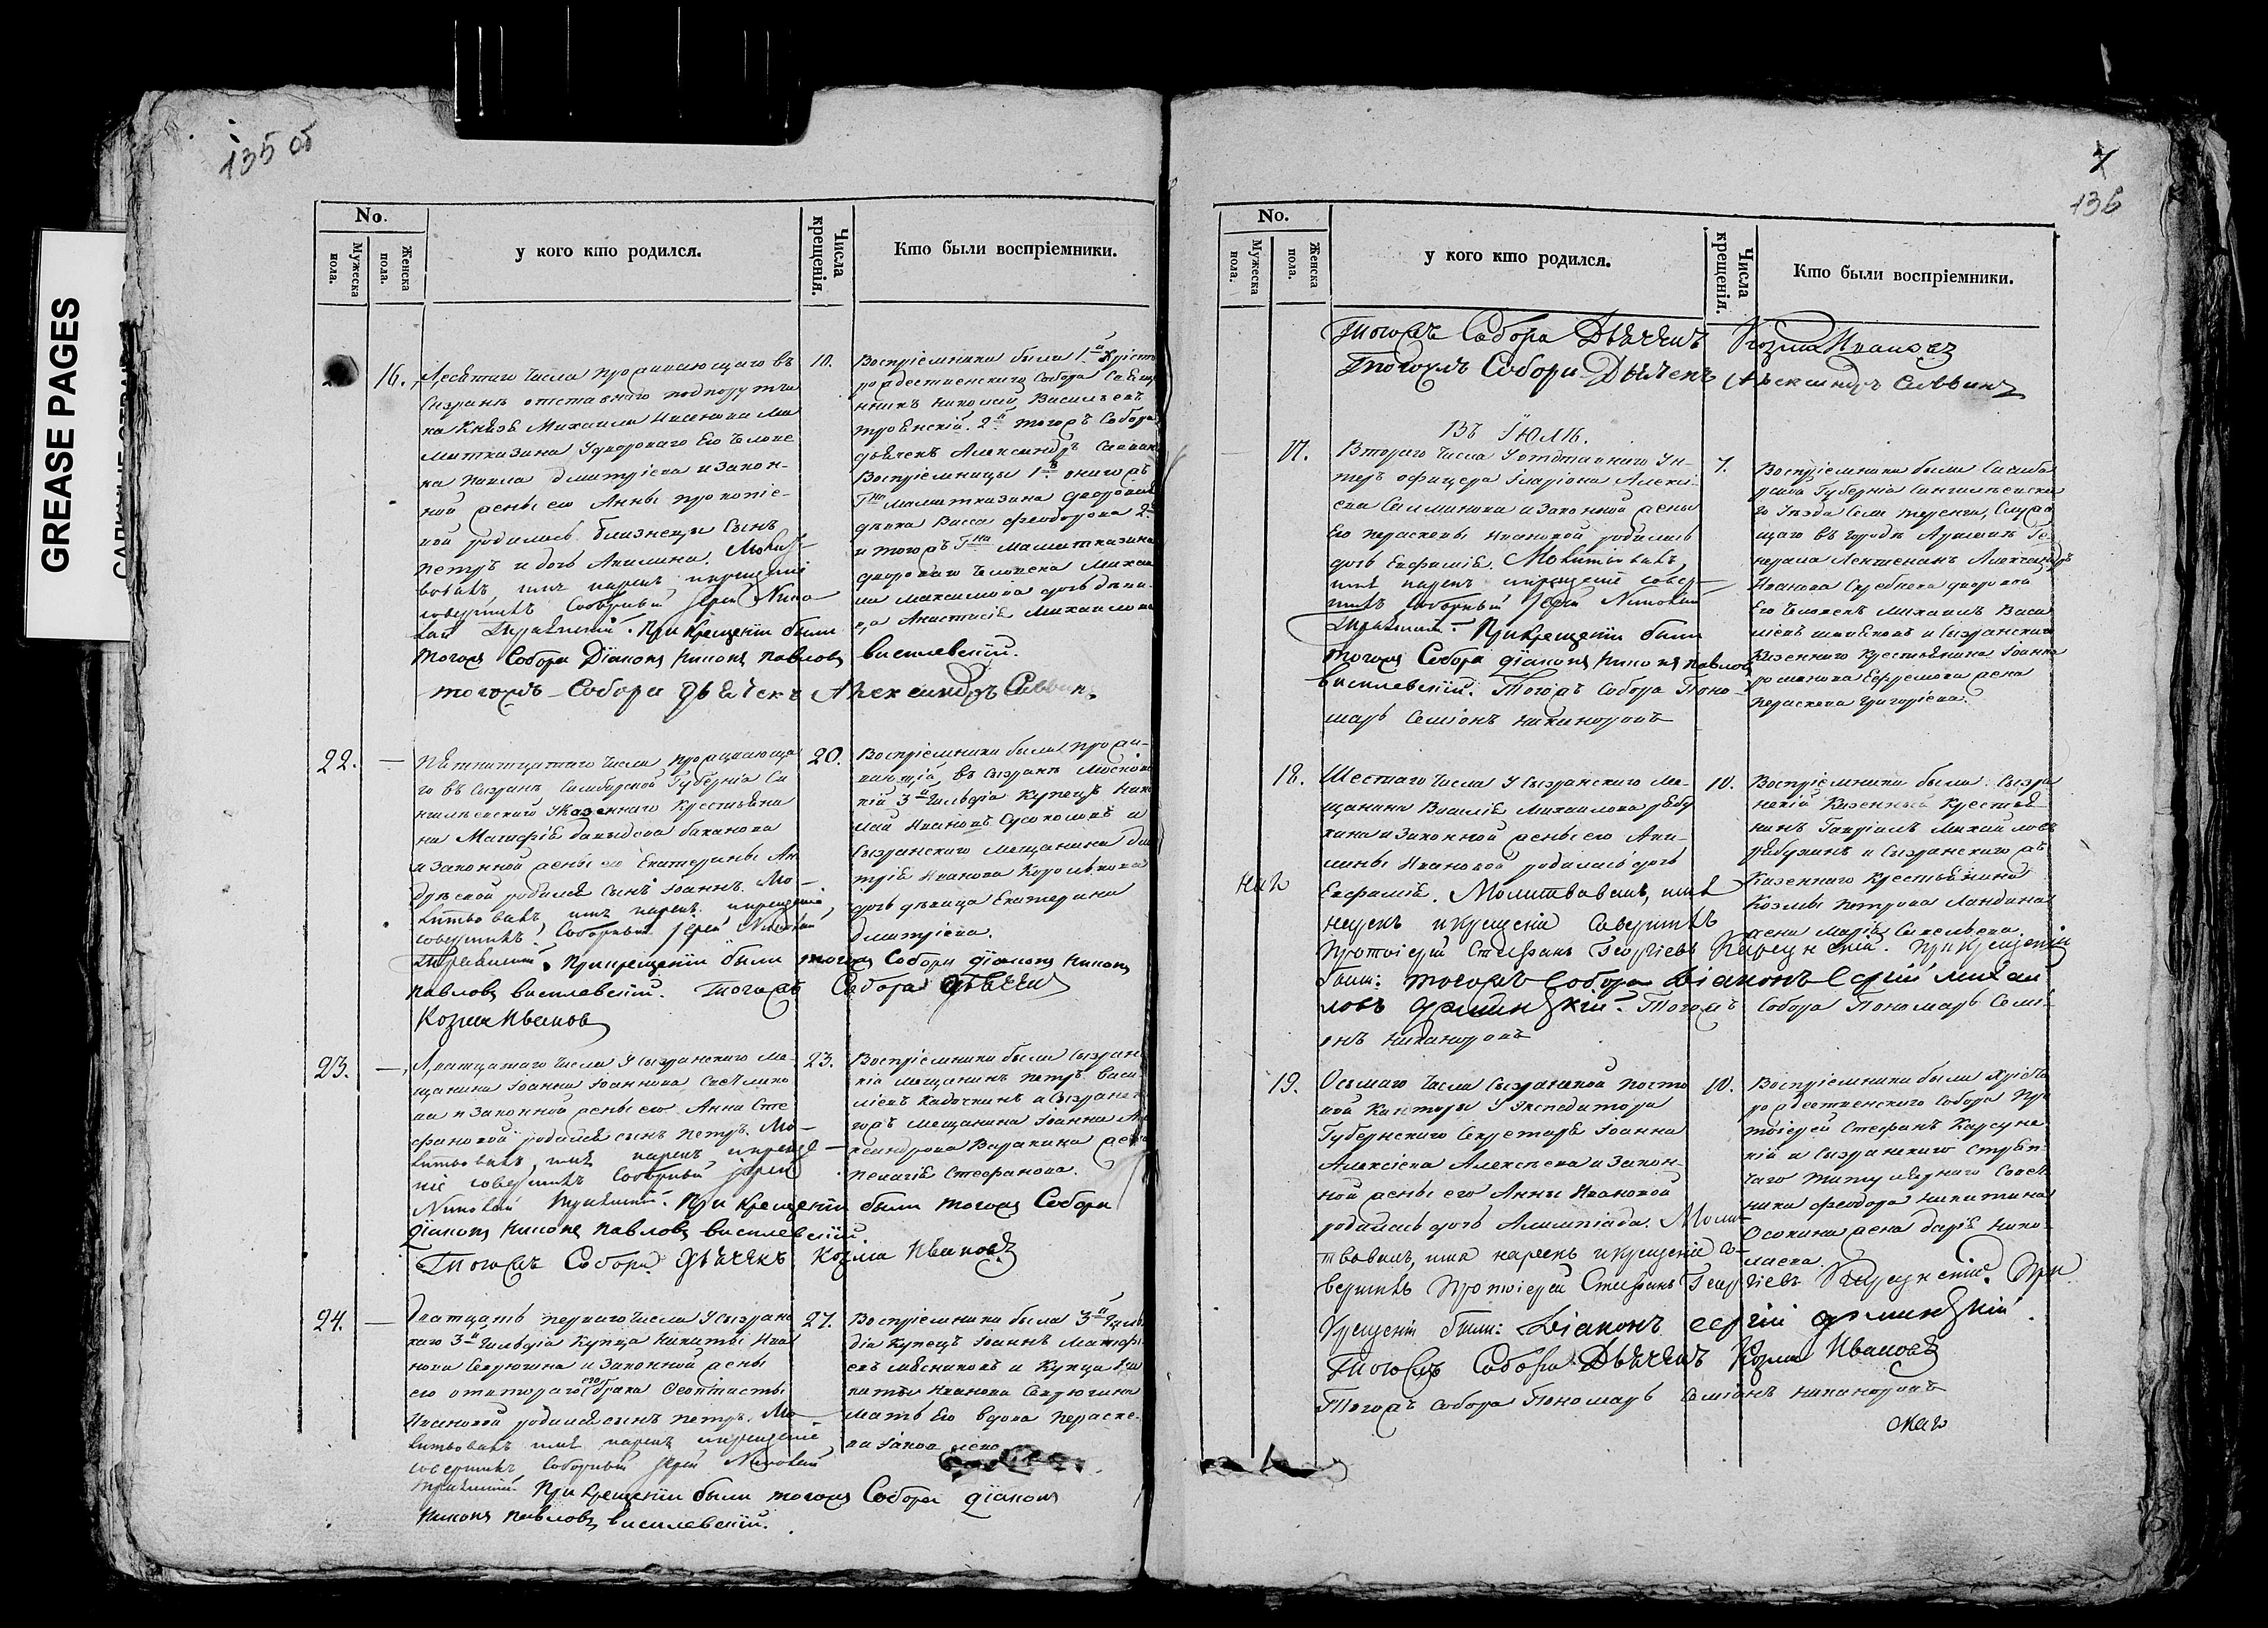 135 об
GREASE PAGES
No.
Мужеска пола.
Женска пола.
у кого кто родился.
Числа крещенія.
Кто были воспріемники.
16.
Десятаго числа проживающаго въ
Сызранѣ отставного подпоручи
ка Князя Михаила
Маматказина Удвороваго Его Челове
ка Павла Дмитріева и закон-
ной жены его Анны Прокопіе-
вой родились близнецы Сынъ
Петръ и дочь Акилина. Молит-
вовалъ, имя нарекъ и крещеніе
совершилъ Соборный Іерей Нико-
лай Троянскій. При крещеніи были
тогожъ Собора Діаконъ Никонъ Павловъ Василевскій.
тогожъ Собора дьячекъ Александръ Саввин.
10.
Воспріемники были 1й Христо
рождественскаго Собора Свяще
нникъ Николай Васильевъ
Троянскій. 2й тогожъ Собора
дьячекъ Александръ Саввин
Воспріемницы 1я онагожъ
Гна Маматказина дворовая
дѣвка Васса Феодорова 2я
и тогожъ Гна Маматказина
двороваго человека Михаи
ла Максимова дочь дѣви-
ца Анастасія Михаилова
22.
Пятнатцатаго числа проживающа
го въ Сызранѣ Симбирской Губерніи Се
нгилѣевской Указеннаго Крестьяни
на Матфѣя Давыдова Баканова
и Законной жены его Екатерины Ан
дрѣевой родился сынъ Іоаннъ. Мо-
литвовалъ, имя нарекъ и крещеніе
совершилъ Соборный Іерей Николай
Троянскій. При крещеніи были тогожъ Собора діаконъ Никонъ
Павловъ Василевскій. Тогожъ Собора дьячекъ
Козма Ивановъ
20.
Воспріемники были прожи-
вающій въ Сызранѣ Московс
кій 3й Гильдіи Купецъ Нико
лай Ивановъ Сусоколовъ и
Сызранскаго мещанина Дми
трія Иванова Королькова
дочь дѣвица Екатерина
Дмитріева.
23.
Дватцатаго числа У сызранскаго ме-
щанина Іоанна Іоаннова Свѣшнико
ва и Законной жены его Анны Сте
фановой родился сынъ Петръ. Мо-
литвовалъ, имя нарекъ и креще-
ніе совершилъ Соборный Іерей
Николай Троянскій. При крещеніи были тогожъ Собора
діаконъ Никонъ Павловъ Василевскій.
Тогожъ Собора дьячекъ Козма Ивановъ
23.
Воспріемники были Сызран
кій мещанинъ Петръ Васи
ліевъ Кадочкинъ и Сызранска
гожъ мещанина Іоанна Але
ксандрова Варакина жена
Пелагія Стефанова.
24.
Дватцать перваго числа У Сызранс
каго 3й Гильдіи Купца Никиты Ива
нова Севрюгина и Законной жены
его отвтораго брака Феоктисты
Ивановой родился сынъ Петръ. Мо-
литвовалъ имя нарекъ и крещеніе
совершилъ Соборный Іерей Николай
Троянскій. При крещеніи были тогожъ Собора діаконъ
Никонъ Павловъ Василевскій.
27.
Воспріемники были 3й Гиль
діи Купецъ Іоаннъ Матфѣ
евъ Мясниковъ и Купца Ни
киты Иванова Севрюгина
мать Его вдова Параске
ва
7
136
No.
Мужеска пола.
Женска пола.
у кого кто родился.
Числа крещенія.
Кто были воспріемники.
Тогожъ Собора Дьячекъ Козма Ивановъ
Тогожъ Собора Дьячекъ Александръ Саввинъ
Въ Іюлѣ.
17.
Втораго числа У отставного Ун-
теръ офицера Иларіона Алексі
ева Салминова и Законной жены
Его Параскевы Ивановой родилась
дочь Евфимія. Молитвовалъ,
имя нарекъ и крещеніе совер-
шилъ Соборный Іерей Николай
Троянскій. При крещеніи были
тогожъ Собора діаконъ Никонъ Павловъ
Василевскій. Тогожъ Собора Поно-
марь Семіонъ Никаноровъ
7.
Воспріемники были Симби
рской Губерніи Сенгилѣевска
го Уѣзда Села Теренги, Служа
щаго въ городѣ Ге
нерала Лейтенанта Александра
Иванова дворовой
Его человекъ Михаилъ Васи
ліевъ и Сызранскаго
Казеннаго Крестьянина Іоанна
Романова Ефремова жена
Параскева Григоріева.
18.
Шестаго числа У Сызранскаго ме-
щанина Василія Михаилова Рябу
хина и Законной жены его Аки-
лины Ивановой родилась дочь
Евфимія. Молитвовалъ, имя
нарекъ и крещеніе совершилъ
Протоіерей Стефанъ Георгіевъ Карсунскій. При крещеніи
были: тогожъ Собора Діаконъ Сергій Михаи
ловъ Фаминскій. Тогожъ Собора Пономарь Семі-
онъ Никаноровъ
10.
Воспріемники были: Сызра
нскій Казенный Крестья-
нинъ Гавріилъ Михайловъ
Рябухинъ и Сызранскагожъ
Казеннаго Крестьянина
Козмы Петрова Ландина
жена Марія Савельева.
19.
Осьмаго числа Сызранской Почто
вой Канторы У Экспедитора
Губернскаго Секретаря Іоанна
Алексіева Алексѣева и Закон-
ной жены его Анны Ивановой
родилась дочь Алимпіада. Моли-
твовалъ, имя нарекъ и крещеніе со-
вершилъ Протоіерей Стефанъ Георгіевъ Карсунскій. При
крещеніи были: Діаконъ Сергій Фаминскій.
Тогожъ Собора Дьячекъ Козма Ивановъ
Тогожъ Собора Пономарь Семіонъ Никаноровъ
10.
Воспріемники были Христо
рождественскаго Собора Про
тоіерей Стефанъ Карсунс
кій и Сызранскаго Стряп-
чаго Титулярнаго Совет
ника Феодора Никитина
Осокина жена Дарія Нико-
лаева.